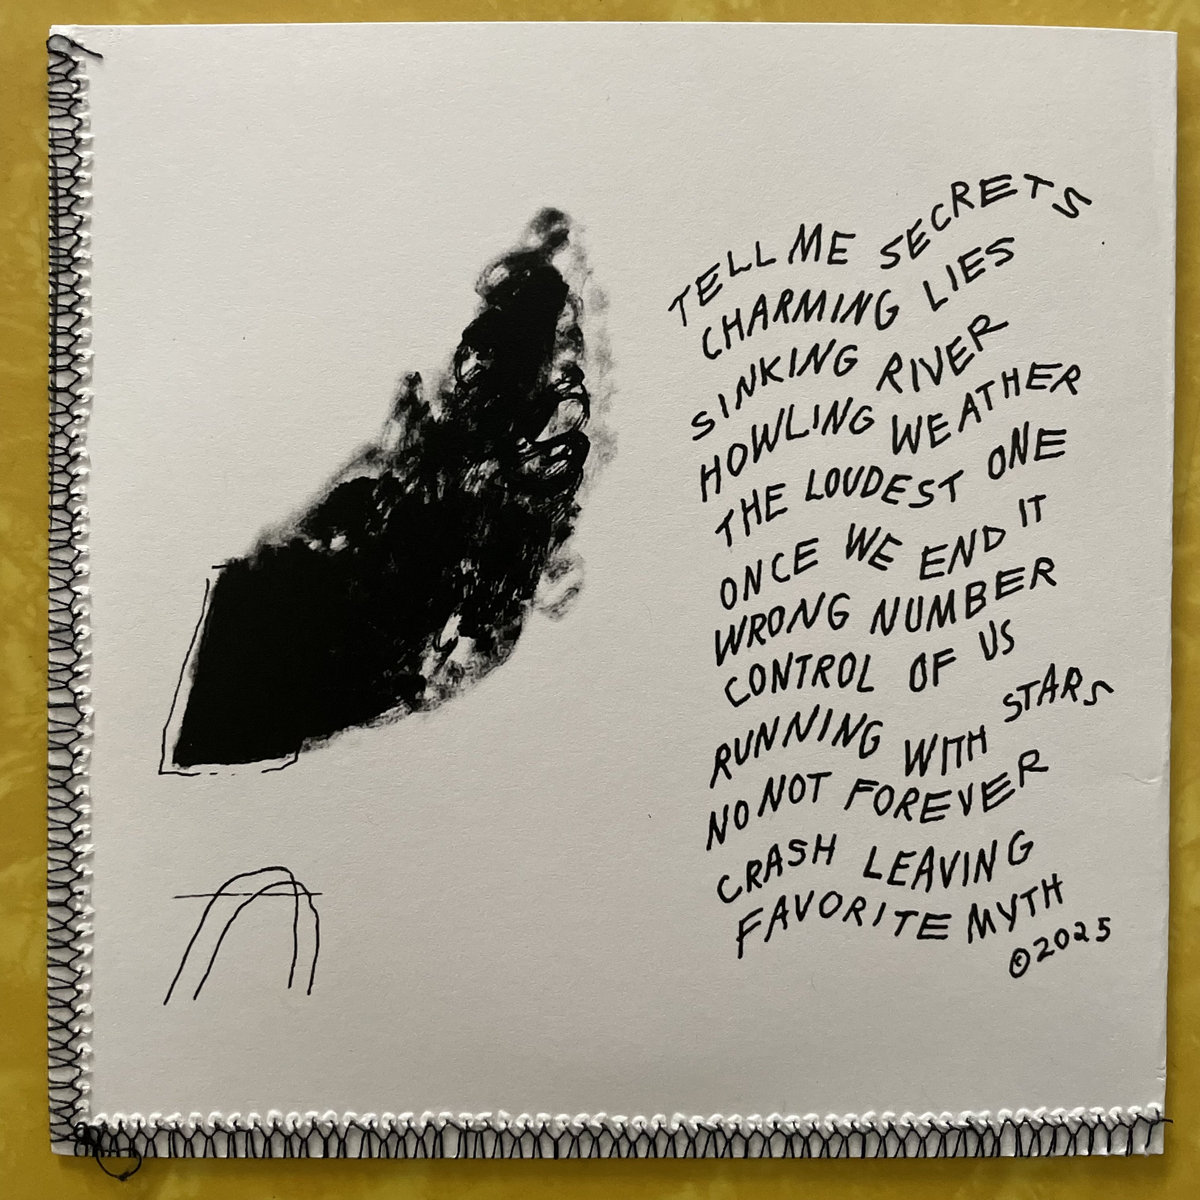 TELL ME SECRETS
CHARMING LIES
SINKING RIVER
HOWLING WEATHER
THE LOUDEST ONE
ONCE WE END IT
WRONG NUMBER
CONTROL OF US
RUNNING WITH STARS
NO NOT FOREVER
CRASH LEAVING
FAVORITE MYTH
©2025